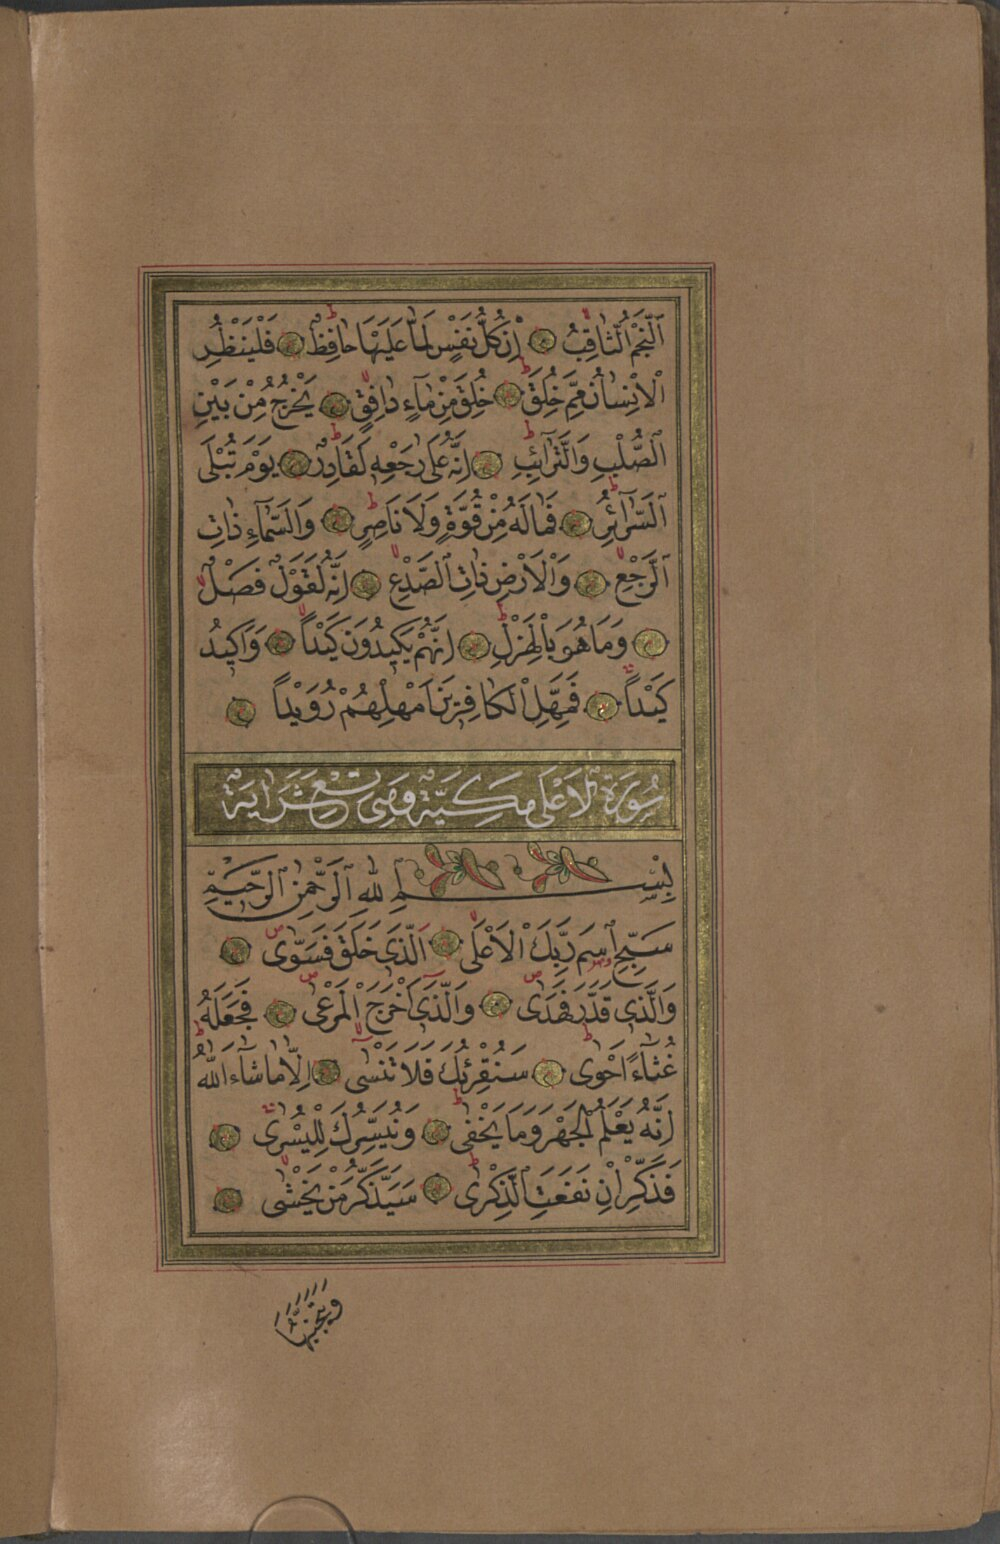 اَلنَّجْمُ الثَّاقِبُ اِنْ كُلُّ نَفْسٍ لَمَّا عَلَيْهَا حَافِظٌ فَلْيَنْظُرِ
الْاِنْسَانُ مِمَّ خُلِقَ خُلِقَ مِنْ مَاءٍ دَافِقٍ يَخْرُجُ مِنْ بَيْنِ
الصُّلْبِ وَالتَّرَائِبِ اِنَّهُ عَلَى رَجْعِهِ لَقَادِرٌ يَوْمَ تُبْلَى
السَّرَائِرُ فَمَا لَهُ مِنْ قُوَّةٍ وَلَا نَاصِرٍ وَالسَّمَاءِ ذَاتِ
الرَّجْعِ وَالْاَرْضِ ذَاتِ الصَّدْعِ اِنَّهُ لَقَوْلٌ فَصْلٌ
وَمَا هُوَ بِالْهَزْلِ اِنَّهُمْ يَكِيدُونَ كَيْدًا وَاَكِيدُ
كَيْدًا فَمَهِّلِ الْكَافِرِينَ اَمْهِلْهُمْ رُوَيْدًا
سُورَةُ الْاَعْلَى مَكِّيَّةٌ وَهِيَ تِسْعَ عَشَرَ اٰيَةً
بِسْمِ اللهِ الرَّحْمٰنِ الرَّحِيمِ
سَبِّحِ اسْمَ رَبِّكَ الْاَعْلَى اَلَّذِي خَلَقَ فَسَوَّى
وَالَّذِي قَدَّرَ فَهَدَى وَالَّذِي اَخْرَجَ الْمَرْعَى فَجَعَلَهُ
غُثَاءً اَحْوَى سَنُقْرِئُكَ فَلَا تَنْسَى اِلَّا مَا شَاءَ اللهُ
اِنَّهُ يَعْلَمُ الْجَهْرَ وَمَا يَخْفَى وَنُيَسِّرُكَ لِلْيُسْرَى
فَذَكِّرْ اِنْ نَفَعَتِ الذِّكْرَى سَيَذَّكَّرُ مَنْ يَخْشَى
وَيَتَجَنَّبُهَا